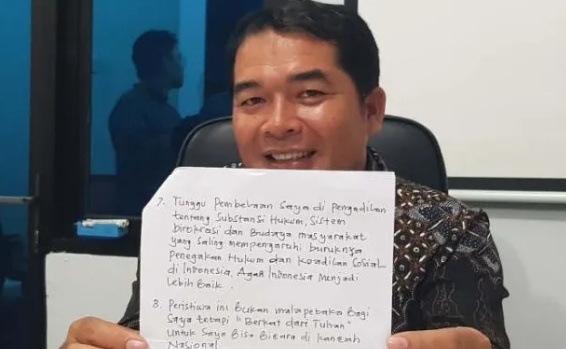 7. Tunggu Pembelaan Saya di Pengadilan
tentang Substansi Hukum, Sistem
birokrasi dan Budaya masyarakat
yang saling mempengaruhi buruknya
Penegakan Hukum dan Keadilan Sosial
di Indonesia, Agar Indonesia Menjadi
Lebih Baik.
8. Peristiwa ini Bukan malapetaka Bagi
Saya tetapi "Berkat dari Tuhan"
Untuk Saya Bisa Bicara di kancah
Nasional